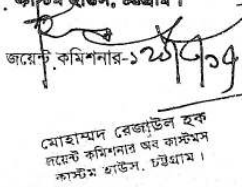 কাস্টম হাউস, চট্টগ্রাম।
জয়েন্ট কমিশনার-১
মোহাম্মদ রেজাউল হক
জয়েন্ট কমিশনার অব কাস্টমস
কাস্টম হাউস, চট্টগ্রাম।